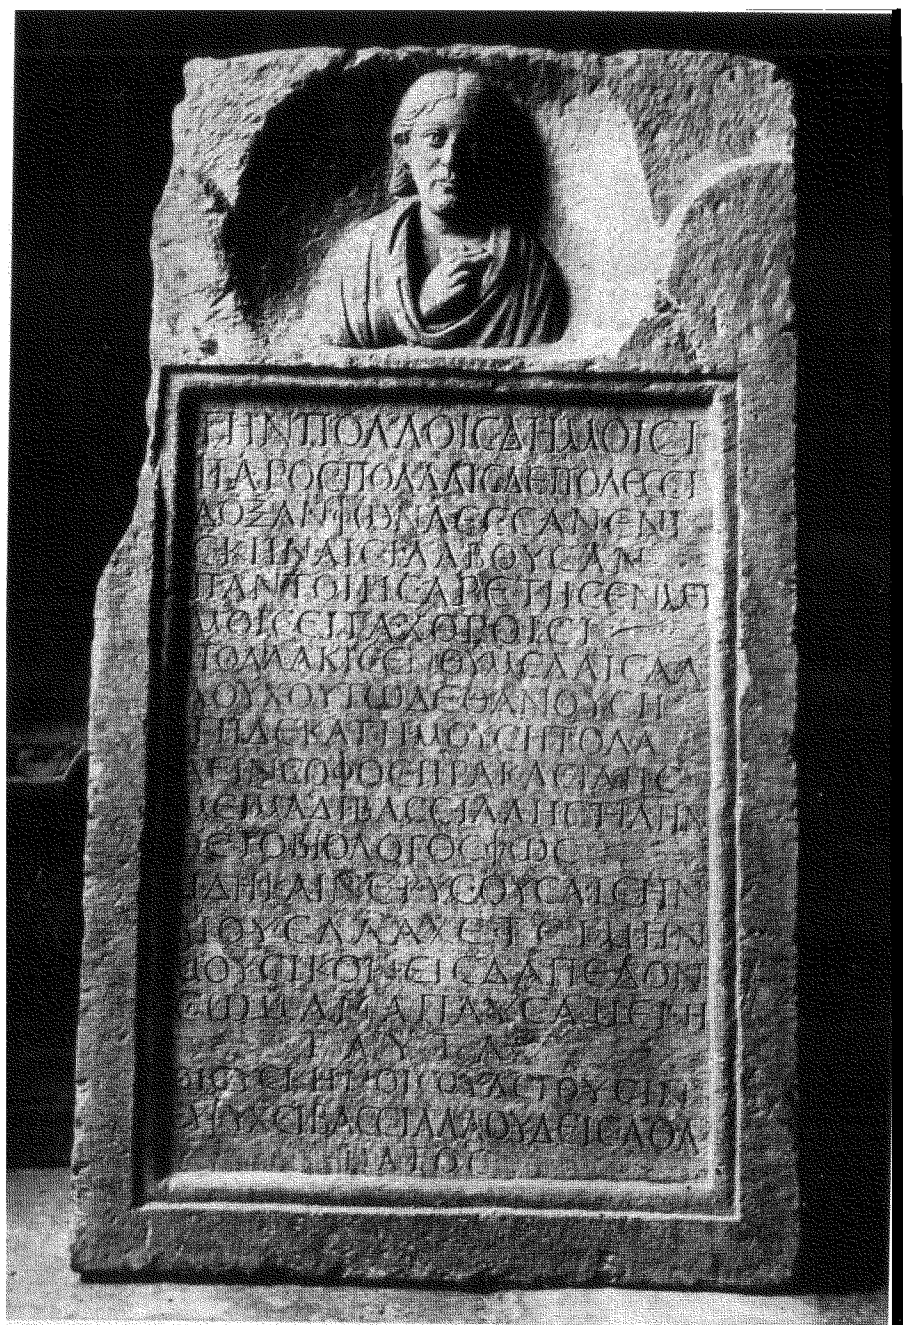 ΤΗΝΠΟΛΛΟΙϹΔΗΜΟΙϹΙ
ΠΑΡΟϹΠΟΛΛΑΙϹΔΕΠΟΛΕϹϹΙ
ΔΟΞΑΝΦΩΝΑΕϹϹΑΝΕΝΙ
ϹΚΗΝΑΙϹΙΛΑΒΟΥϹΑΝ
ΠΑΝΤΟΙΗϹΑΡΕΤΗϹΕΝΜΕΙ
ΜΟΙϹΕΙΤΑΧΟΡΟΙϹΙ
ΠΟΛΛΑΚΙϹΕΝΘΥΜΕΛΑΙϹΑΛ
ΛΟΥΧΟΥΤΩΔΕΘΑΝΟΥϹΗ
ΤΗΔΕΚΑΤΗΜΟΥϹΗΤΟΛΑ
ΛΕΙΝϹΟΦΟϹΗΡΑΚΛΕΙΔΗϹ
ΜΕΙΜΑΔΙΒΑϹϹΙΛΛΗϹΤΗΛΗΝ
ΘΕΤΟΒΙΟΛΟΓΟϹΦΩϹ
ΗΔΗΚΑΙΝΕΚΥϹΟΥϹΑΙϹΗΝ
ΒΙΟΥΕΛΛΑΧΕΤΕΙΜΗΝ
ΜΟΥϹΙΚΟΝΕΙϹΔΑΠΕΔΟΝ
ϹΩΜΑΝΑΠΑΥϹΑΜΕΝΗ
ΤΑΥΤΑ
ΟΙϹΥϹΚΗΝΟΙϹΟΥΛΕΓΟΥϹΙΝ
ΕΥΨΥΧΕΙΒΑϹϹΙΛΛΑΟΥΔΕΙϹΑΘΑ
ΝΑΤΟϹ